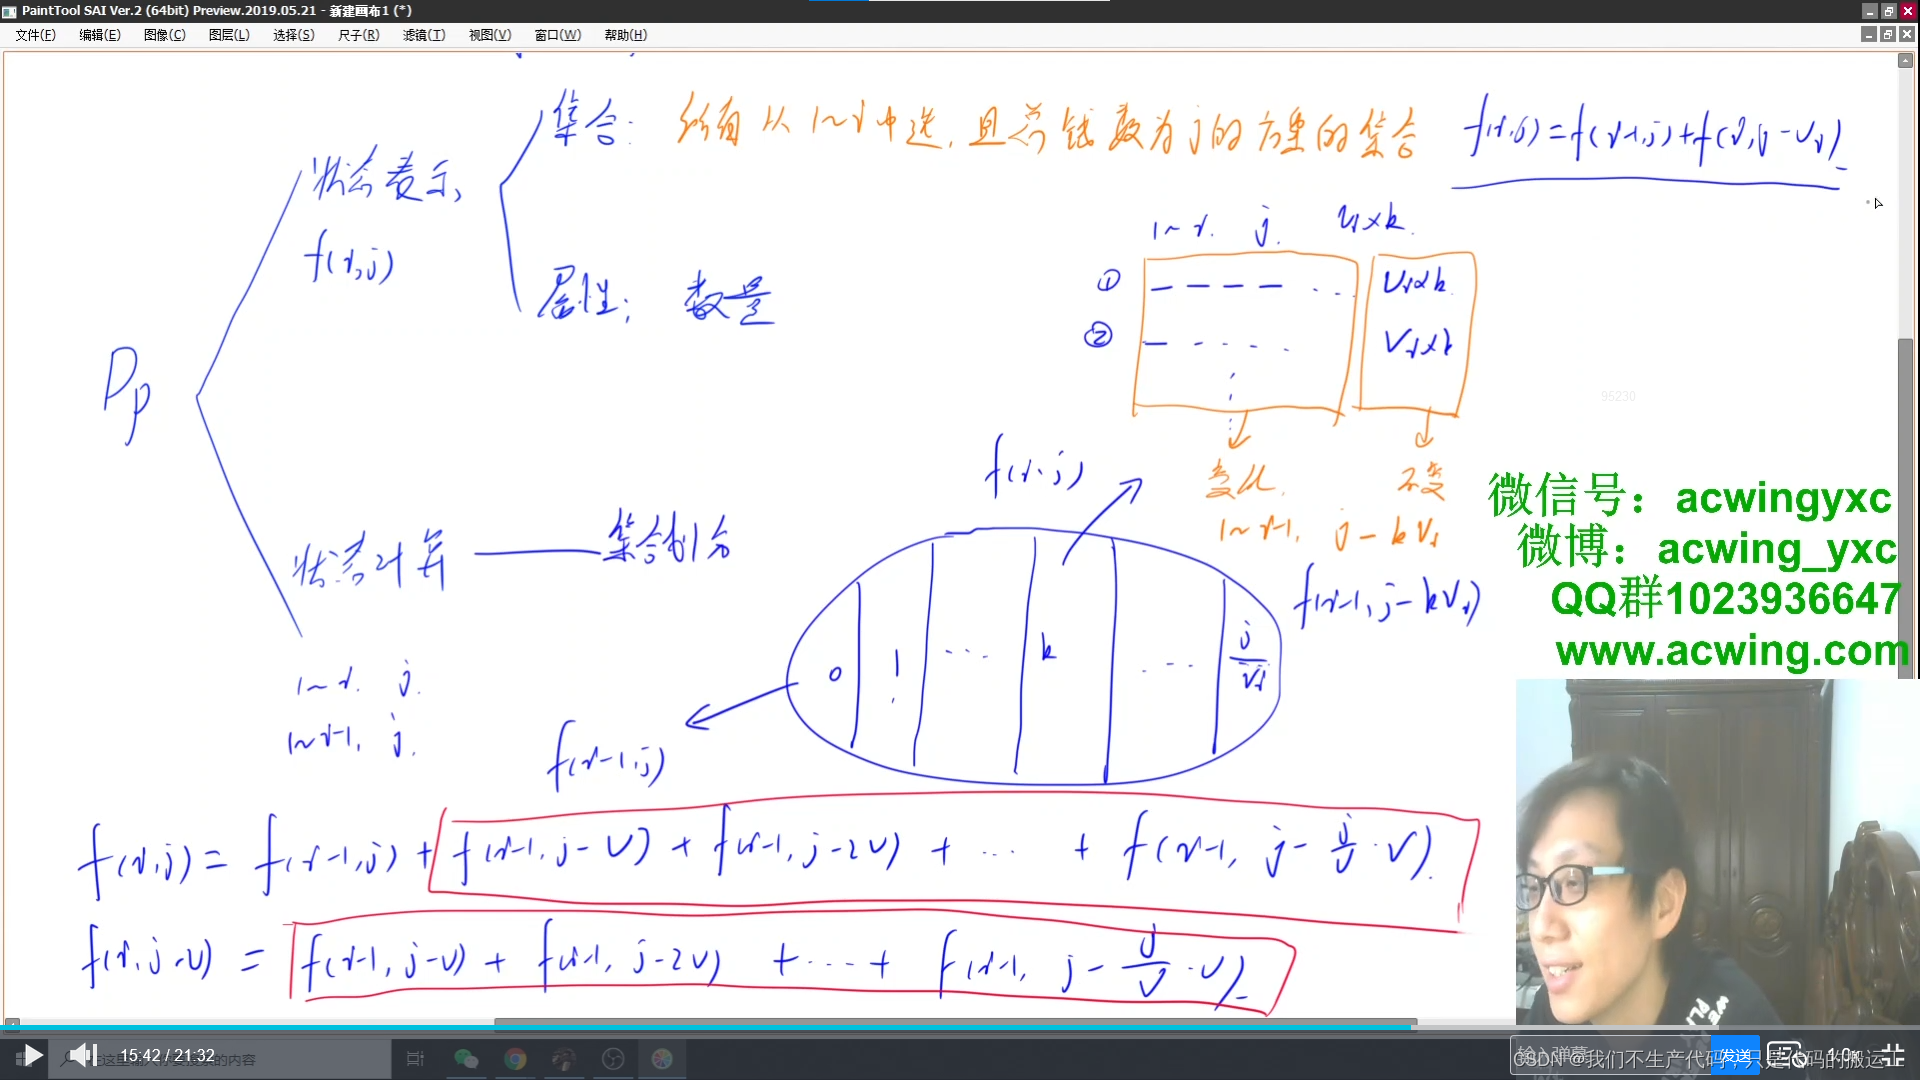 PaintTool SAI Ver.2 (64bit) Preview.2019.05.21 - 新建画布1 (*)
文件(F) 编辑(E) 图像(C) 图层(L) 选择(S) 尺子(R) 滤镜(T) 视图(V) 窗口(W) 帮助(H)
集合: 所有从1~i中选,且总钱数为j的方案的集合
f(i,j)=f(i-1,j)+f(i,j-vi)
状态表示,
f(i,j)
属性: 数量
1~i. j. vi×k.
① — — — — ... vi×k.
② — - - - - vi×k
DP
变化. 不变
1~i-1, j-kvi
f(i-1,j-kvi)
f(i,j)
状态计算 集合划分
0 1 ... k ... j/vi
1~i. j.
1~i-1, j.
f(i-1,j)
f(i,j)= f(i-1,j)+f(i-1,j-v)+f(i-1,j-2v)+...+f(i-1,j-j/v·v).
f(i,j-v) = f(i-1,j-v)+f(i-1,j-2v)+...+f(i-1,j-j/v·v)
95230
微信号：acwingyxc
微博：acwing_yxc
QQ群1023936647
www.acwing.com
15:42 / 21:32
发送
1.0x
CSDN @我们不生产代码，只是代码的搬运工